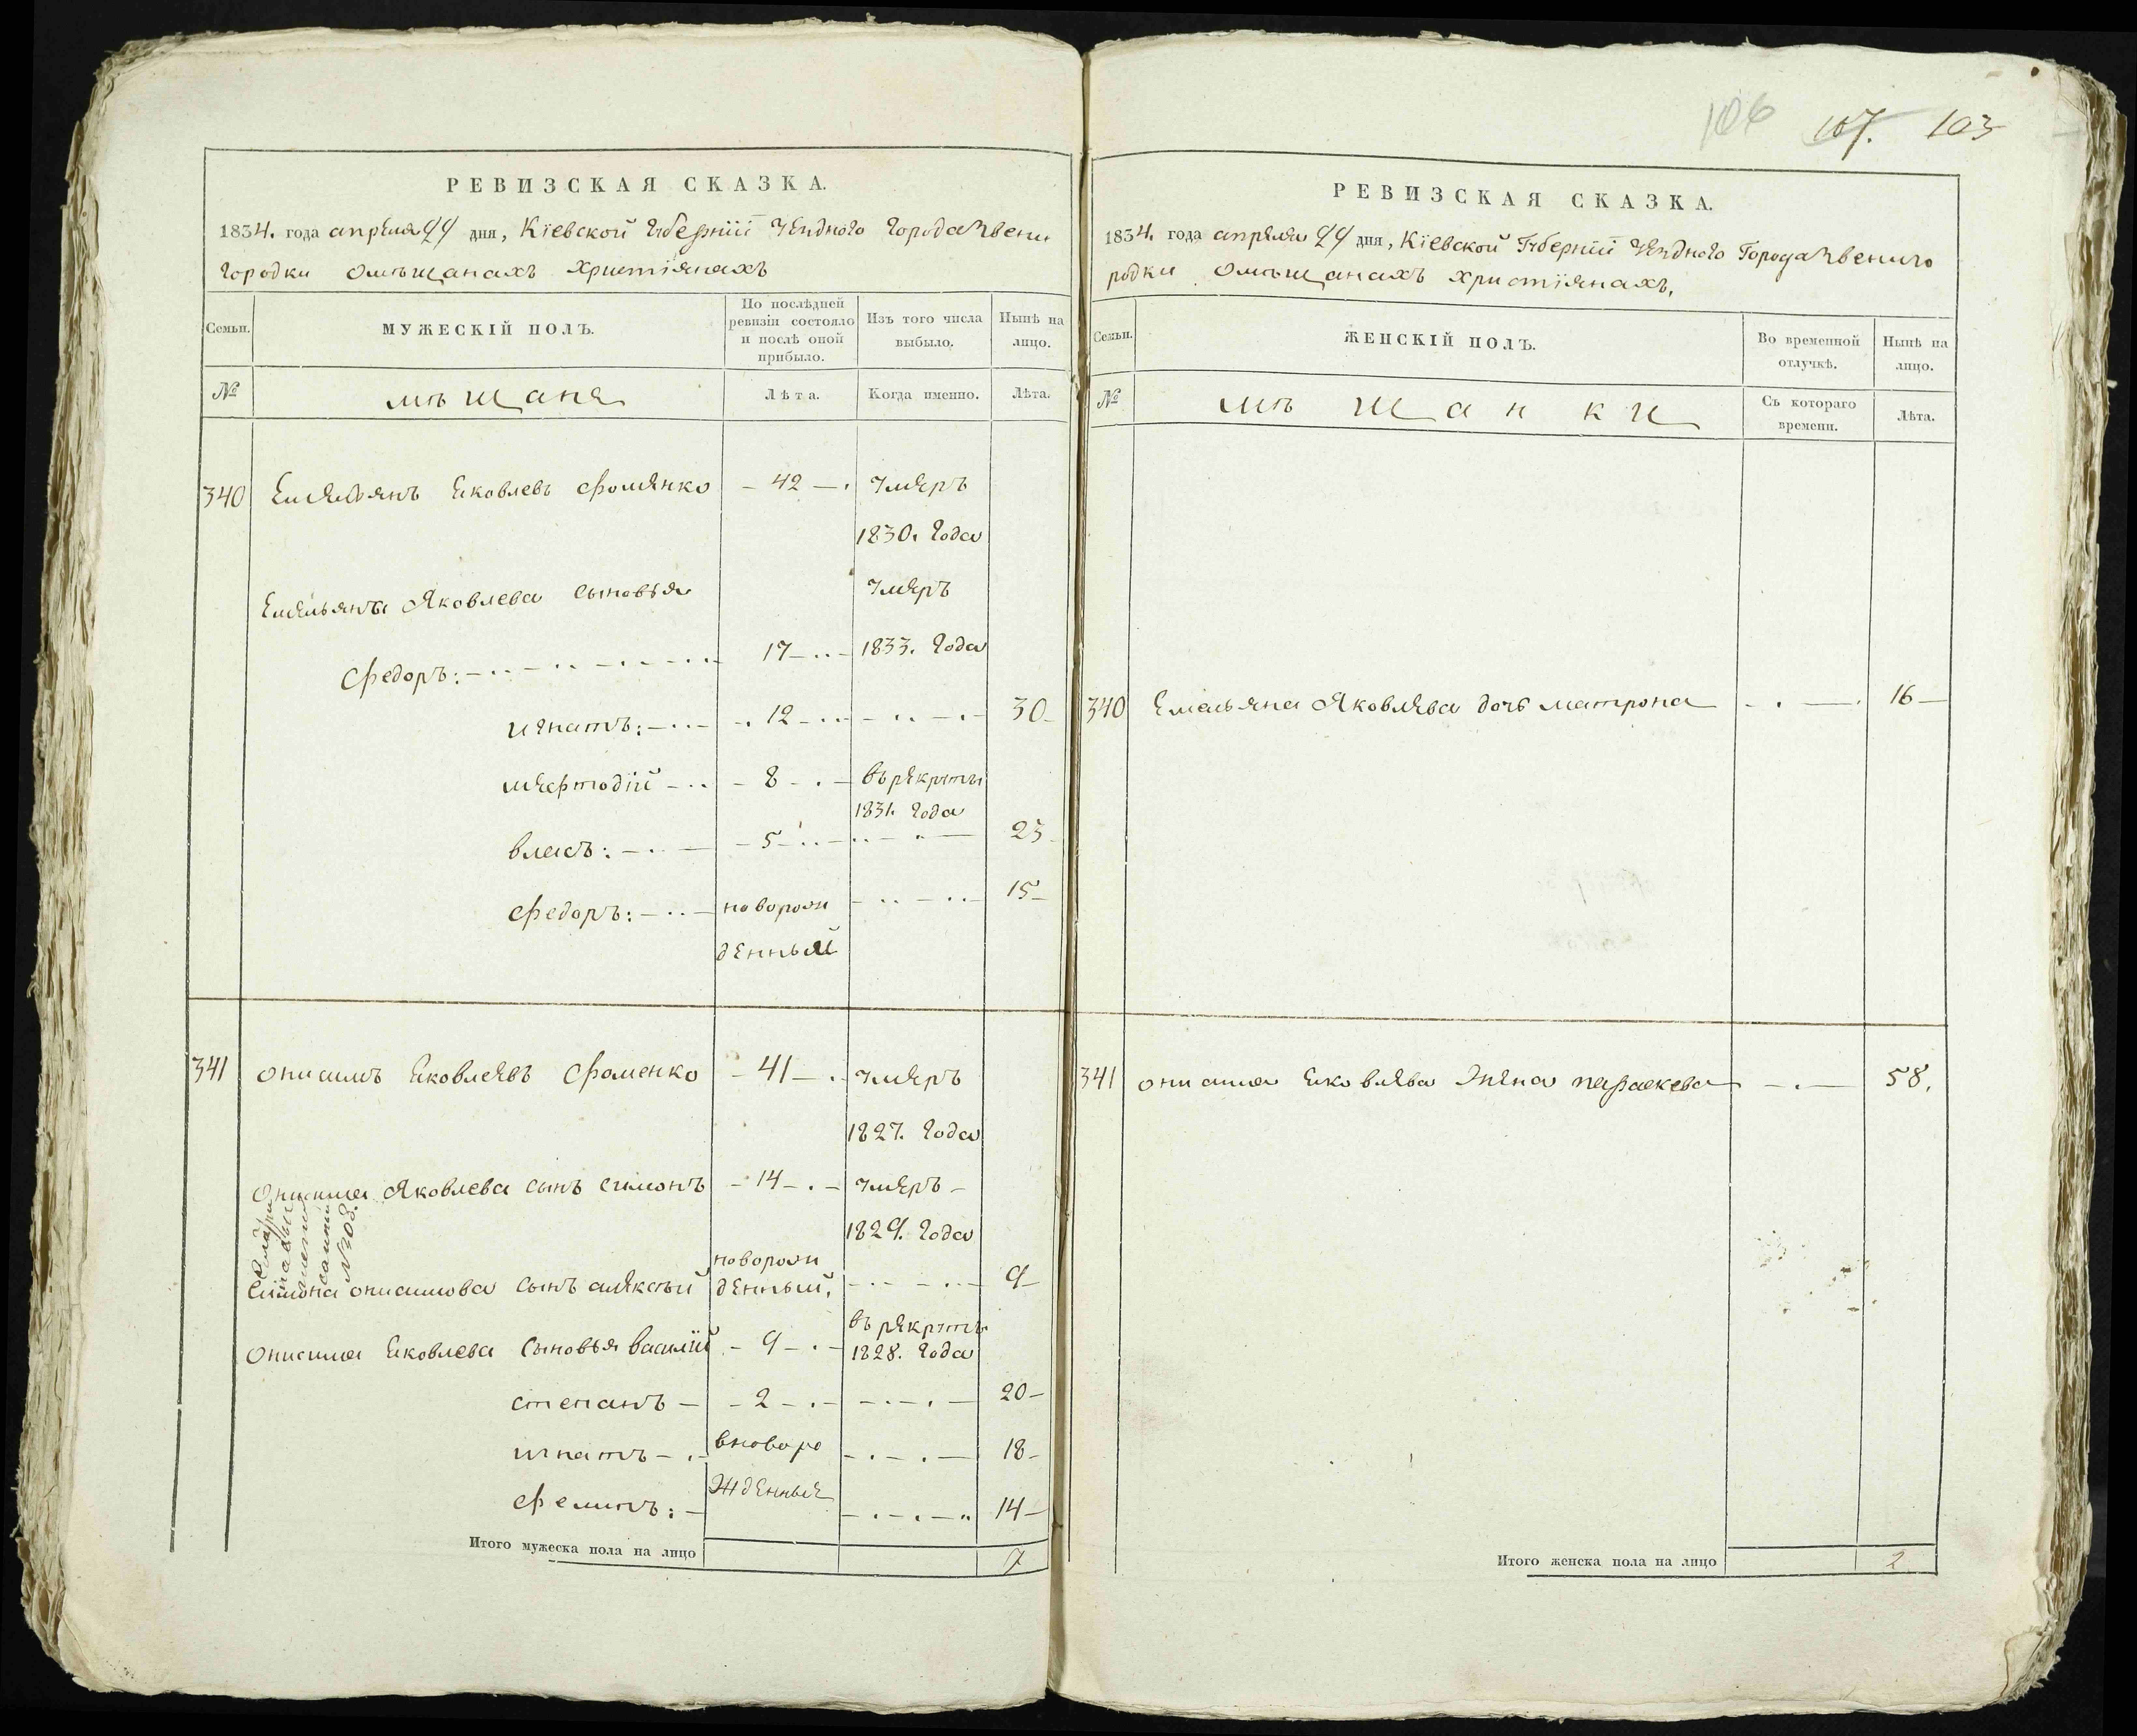 РЕВИЗСКАЯ СКАЗКА.
1834. года апреля 24 дня, Кіевской Губерніи уезднаго города Звени
городки омѣщанахъ христіянахъ
Семьи.
МУЖЕСКІЙ ПОЛЪ.
По послѣдней
ревизіи состояло
и послѣ оной
прибыло.
Изъ того числа
выбыло.
Нынѣ на
лицо.
№
мѣщане
Лѣта.
Когда именно.
Лѣта.
340 Емельянъ Яковлевъ Фоменко - 42 - умеръ
1830. года
Емельяна Яковлева сыновья умеръ
Федоръ: 17 1833. года
игнатъ: 12 30
мефтодій 8 въ рекруты
1831. года
власъ: 5 23
Федоръ: поворож 15
денный
341 онисимъ Яковлевъ Фоменко - 41 - умеръ
1827. года
Онисима Яковлева сынъ симонъ - 14 - умеръ
1829. года
поворож
Симона онисимова сынъ алексѣй денный, 9
въ рекруты
онисима Яковлева сыновья василій - 9 - 1828. года
степанъ - 2 - 20
игнатъ вноворо 18
жденные
Филипъ: 14
№ 308.
Итого мужеска пола на лицо 7
106 107. 103
РЕВИЗСКАЯ СКАЗКА.
1834. года апреля 24 дня, Кіевской Губерніи уезднаго Города Звениго
родки омѣщанахъ христіянахъ,
Семьи.
ЖЕНСКІЙ ПОЛЪ.
Во временной
отлучкѣ.
Нынѣ на
лицо.
№
мѣщанки
Съ котораго
времени.
Лѣта.
340 Емельяна Яковлева дочь матрона 16
341 онисима Яковлева жена параскева 58.
Итого женска пола на лицо 2